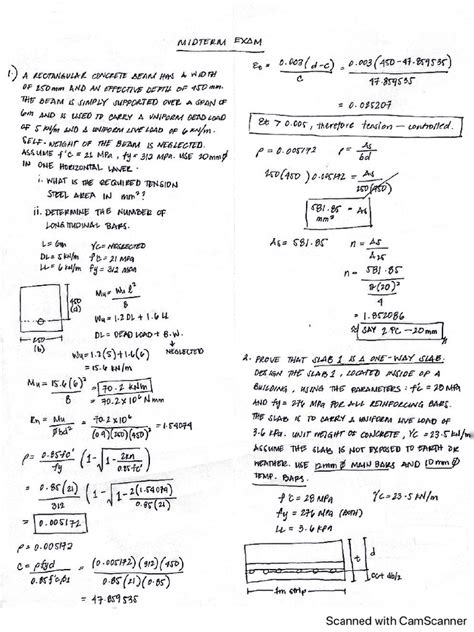 MIDTERM EXAM
1.) A RECTANGULAR CONCRETE BEAM HAS A WIDTH
OF 250mm AND AN EFFECTIVE DEPTH OF 450mm.
THE BEAM IS SIMPLY SUPPORTED OVER A SPAN OF
6m AND IS USED TO CARRY A UNIFORM DEAD LOAD
OF 5 kN/m AND A UNIFORM LIVE LOAD OF 6 kN/m.
SELF-WEIGHT OF THE BEAM IS NEGLECTED.
ASSUME f'c = 21 MPA, fy = 312 MPA. USE 20mmØ
IN ONE HORIZONTAL LAYER.
i. WHAT IS THE REQUIRED TENSION
STEEL AREA IN mm²?
ii. DETERMINE THE NUMBER OF
LONGITUDINAL BARS.
L = 6m γc = NEGLECTED
DL = 5 kN/m f'c = 21 MPA
LL = 6 kN/m fy = 312 MPA
450
(d)
250
(b)
Mu = Wu l² / 8
Wu = 1.2 DL + 1.6 LL
DL = DEAD LOAD + B.W.
NEGLECTED
Wu = 1.2(5) + 1.6(6)
= 15.6 kN/m
Mu = 15.6(6)² / 8 = 70.2 kNm
= 70.2 x 10⁶ N mm
Rn = Mu / Øbd² = 70.2 x 10⁶ / (0.9)(250)(450)² = 1.54079
ρ = 0.85fc' / fy (1 - √(1 - 2Rn / 0.85fc'))
= 0.85(21) / 312 (1 - √(1 - 2(1.54079) / 0.85(21)))
= 0.005172
ρ = 0.005172
c = ρfyd / 0.85f'cβ1 = (0.005172)(312)(450) / 0.85(21)(0.85)
= 47.859535
εt = 0.003(d-c) / c = 0.003(450 - 47.859535) / 47.859535
= 0.025207
εt > 0.005, therefore tension - controlled.
ρ = 0.005172 ρ = As / bd
250(450) 0.005172 = As / 250(450)
581.85 = As
mm²
As = 581.85 n = As / A20
n = 581.85 / (π(20)² / 4)
= 1.852086
≈ SAY 2 PC - 20mm
2. PROVE THAT SLAB 1 IS A ONE-WAY SLAB.
DESIGN THE SLAB 1, LOCATED INSIDE OF A
BUILDING, USING THE PARAMETERS: f'c = 28 MPA
AND fy = 276 MPA FOR ALL REINFORCING BARS.
THE SLAB IS TO CARRY A UNIFORM LIVE LOAD OF
3.6 kPa. UNIT WEIGHT OF CONCRETE, γc = 23.5 kN/m³
ASSUME THE SLAB IS NOT EXPOSED TO EARTH OR
WEATHER. USE 12mm Ø MAIN BARS AND 10mm Ø
TEMP. BARS.
f'c = 28 MPA γc = 23.5 kN/m³
fy = 276 MPA (BOTH)
LL = 3.6 kPa
t d
CC + db/2
1m strip
Scanned with CamScanner